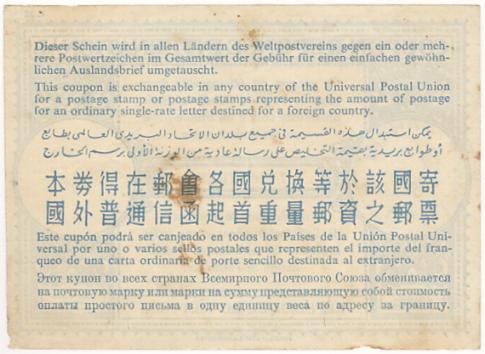 Dieser Schein wird in allen Ländern des Weltpostvereins gegen ein oder meh-
rere Postwertzeichen im Gesamtwert der Gebühr für einen einfachen gewöhn-
lichen Auslandsbrief umgetauscht.
This coupon is exchangeable in any country of the Universal Postal Union
for a postage stamp or postage stamps representing the amount of postage
for an ordinary single-rate letter destined for a foreign country.
يمكن استبدال هذه القسيمة في جميع بلدان الاتحاد البريدى العالمى بطابع
أو طوابع بريدية بقيمة التخليص على رسالة عادية من الوزنة الأولى برسم الخارج
本劵得在郵會各國兌換等於該國寄
國外普通信函起首重量郵資之郵票
Este cupón podrá ser canjeado en todos los Países de la Unión Postal Uni-
versal por uno o varios sellos postales que representen el importe del fran-
queo de una carta ordinaria de porte sencillo destinada al extranjero.
Этот купон во всех странах Всемирного Почтового Союза обменивается
на почтовую марку или марки на сумму представляющую собой стоимость
оплаты простого письма в одну единицу веса по адресу за границу.